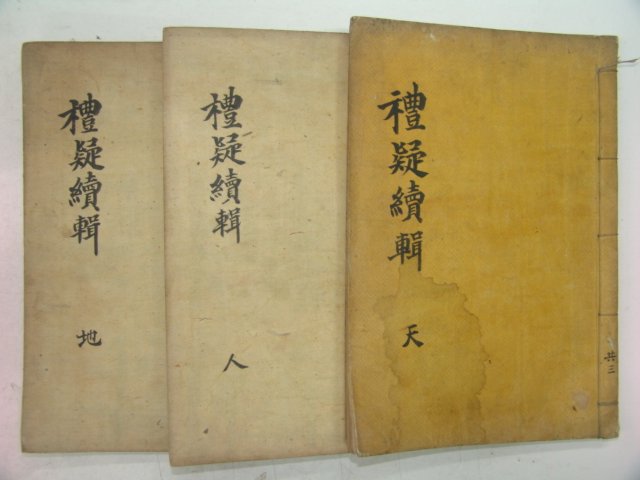 禮疑續輯
地
禮疑續輯
人
禮疑續輯
天
共三